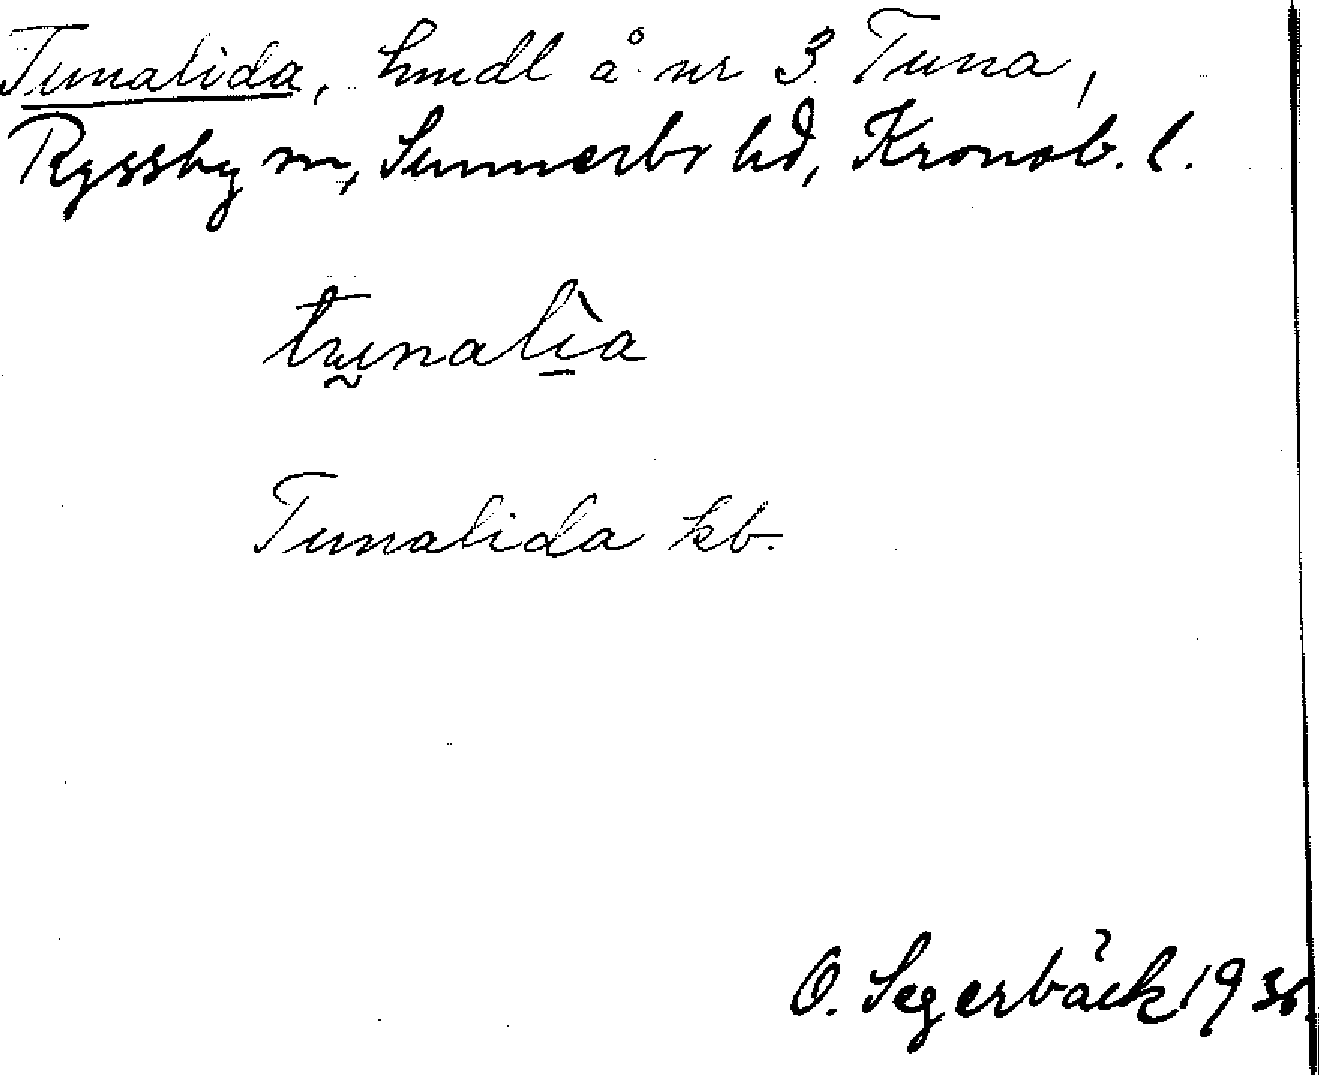 Tunalida, hmdl å nr 3 Tuna,
Ryssby sn, Sunnerbo hd, Kronob. l.
Tunalida kb.
O. Segerbäck